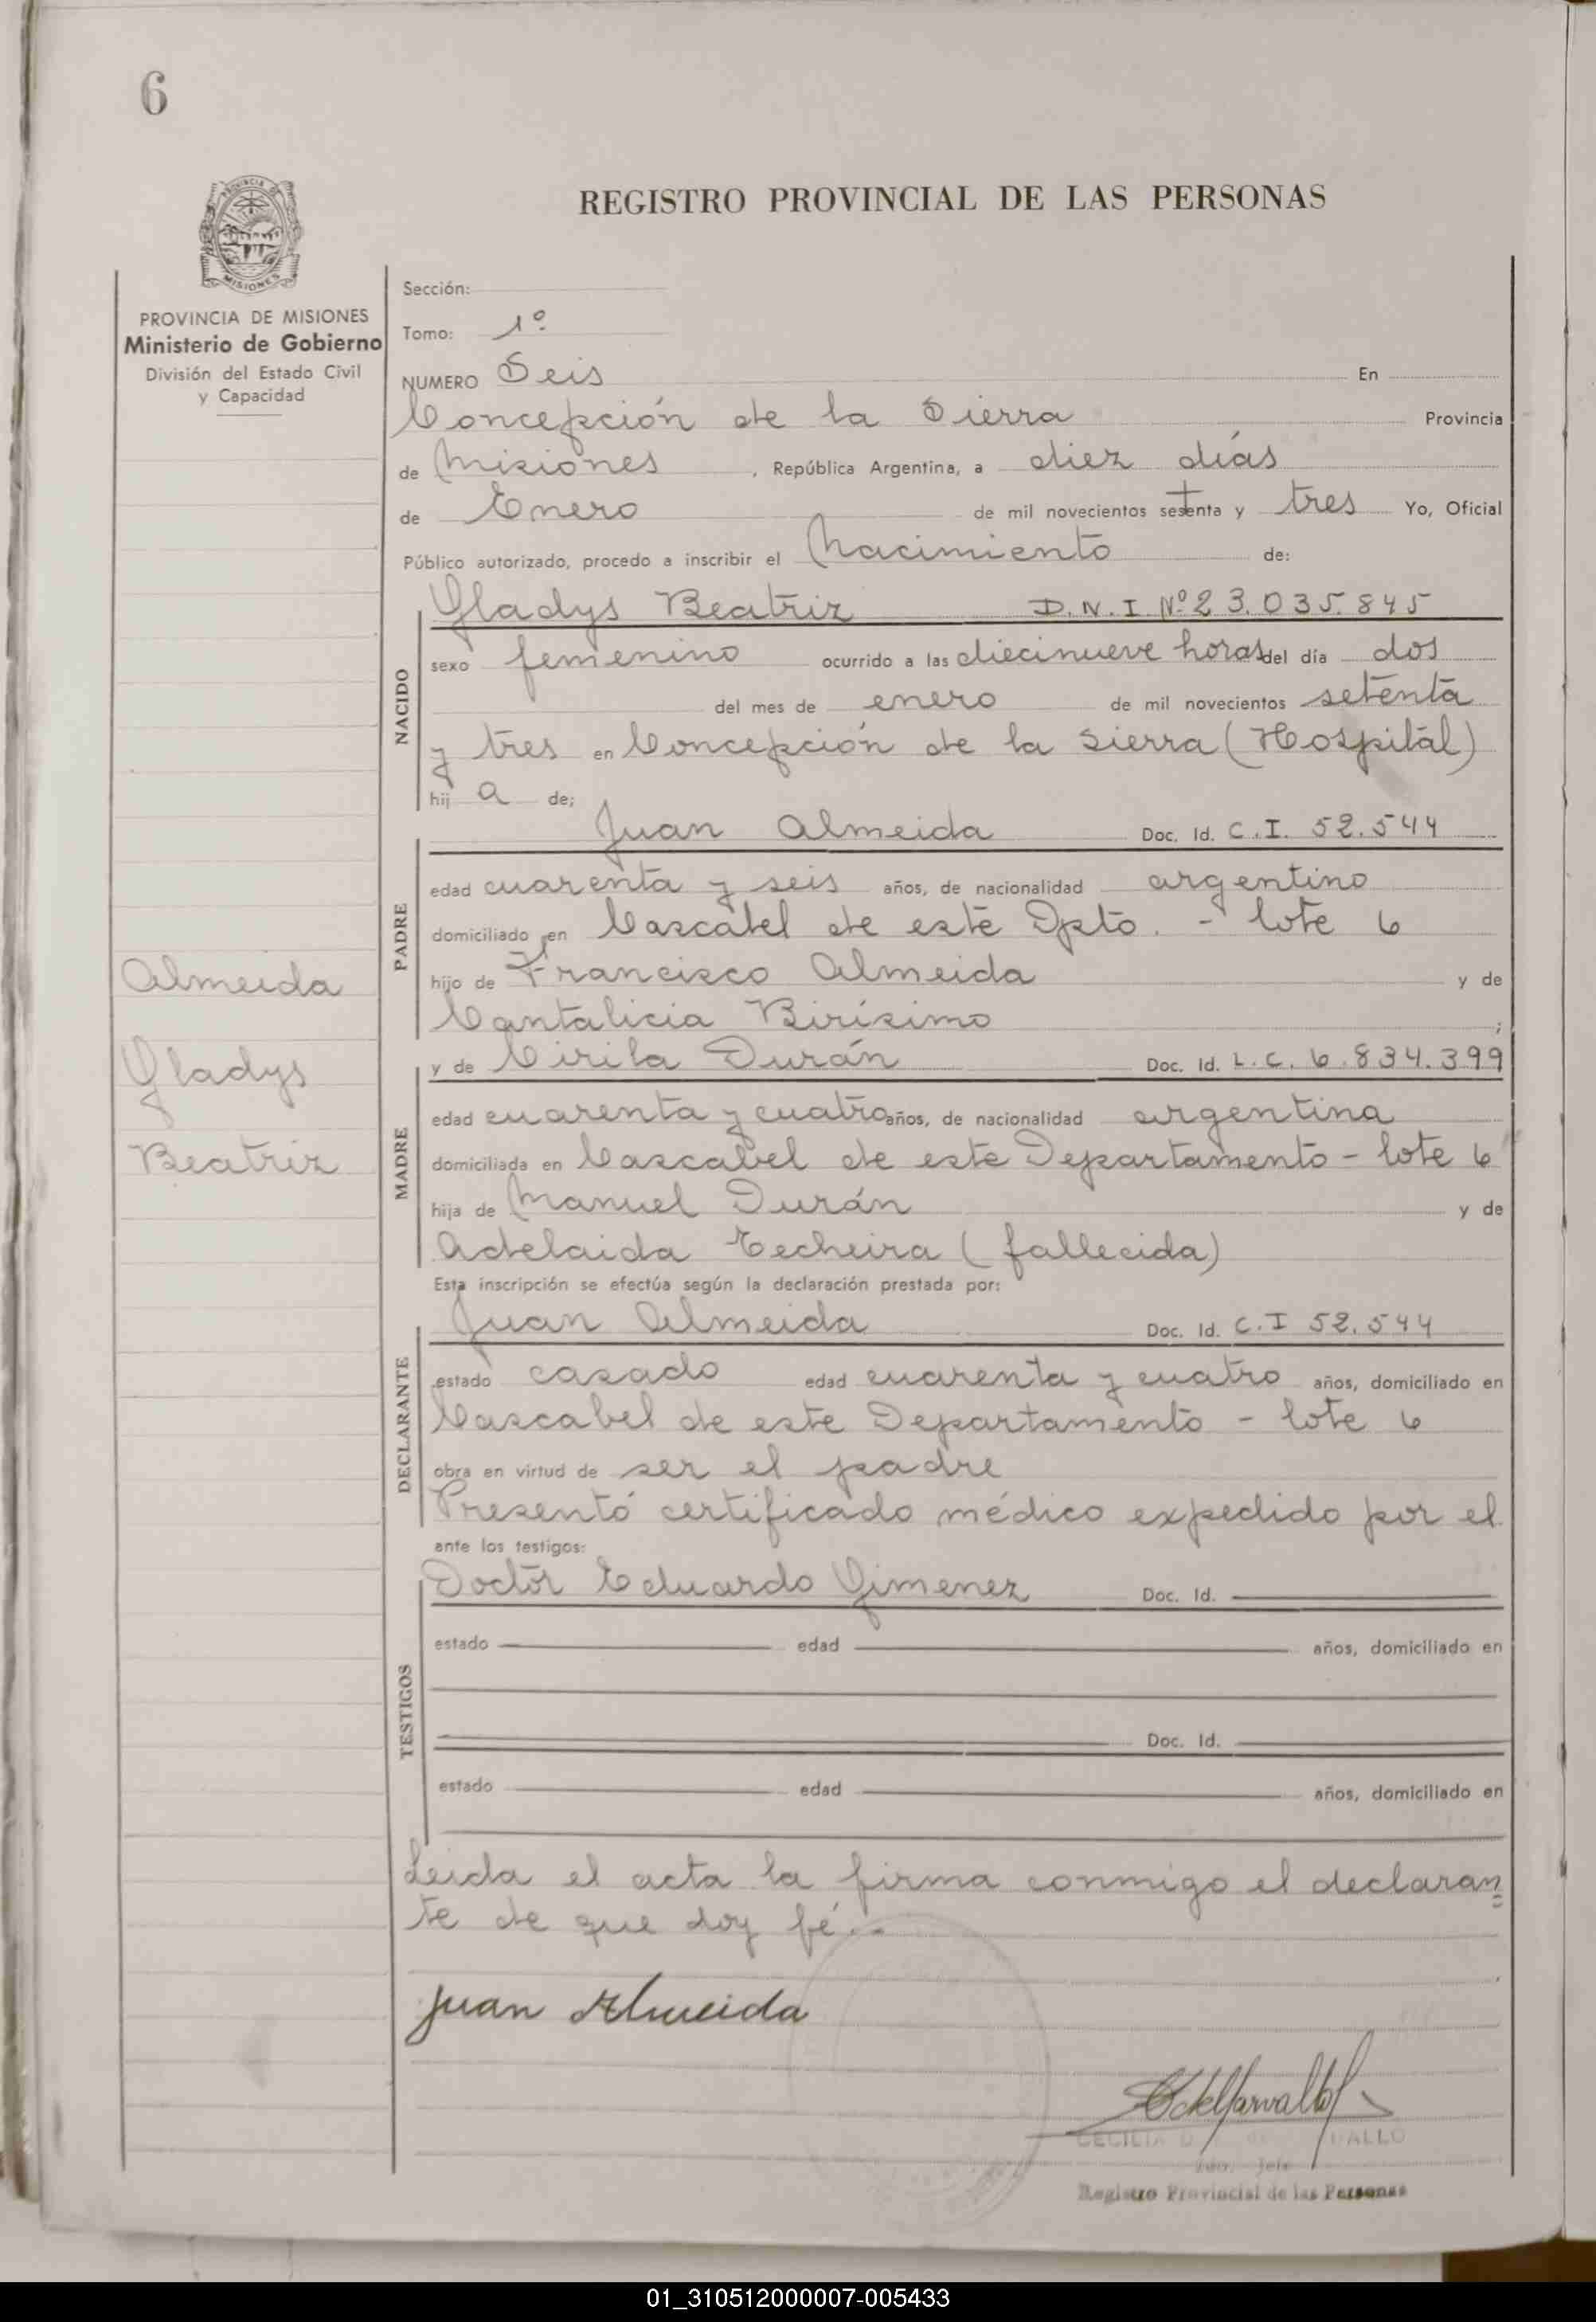 6
REGISTRO PROVINCIAL DE LAS PERSONAS
PROVINCIA DE MISIONES
Ministerio de Gobierno
División del Estado Civil
y Capacidad
Sección:
Tomo: 1º
NUMERO Seis En
Concepción de la Sierra Provincia
de Misiones , República Argentina, a diez días
de Enero de mil novecientos setenta y tres Yo, Oficial
Público autorizado, procedo a inscribir el Nacimiento de:
NACIDO
Gladys Beatriz D.N.I. Nº 23.035.845
sexo femenino ocurrido a las diecinueve horas del día dos
del mes de enero de mil novecientos setenta
y tres en Concepción de la Sierra (Hospital)
hij a de;
PADRE
Juan Almeida Doc. Id. C.I. 52.544
edad cuarenta y seis años, de nacionalidad argentino
domiciliado en Cascabel de este Dpto. - lote 6
hijo de Francisco Almeida y de
Cantalicia Birísimo ;
Almeida
Gladys
Beatriz
MADRE
y de Cirila Durán Doc. Id. L.C. 6.834.399
edad cuarenta y cuatro años, de nacionalidad argentina
domiciliada en Cascabel de este Departamento - lote 6
hija de Manuel Durán y de
Adelaida Techeira (fallecida)
Esta inscripción se efectúa según la declaración prestada por:
DECLARANTE
Juan Almeida Doc. Id. C.I 52.544
estado casado edad cuarenta y cuatro años, domiciliado en
Cascabel de este Departamento - lote 6
obra en virtud de ser el padre
Presentó certificado médico expedido por el
ante los testigos:
TESTIGOS
Doctor Eduardo Gimenez Doc. Id.
estado edad años, domiciliado en
Doc. Id.
estado edad años, domiciliado en
Leida el acta la firma conmigo el declaran=
te de que doy fé..
Juan Almeida
CECILIA D
Jefe
Registro Provincial de las Personas
01_310512000007-005433